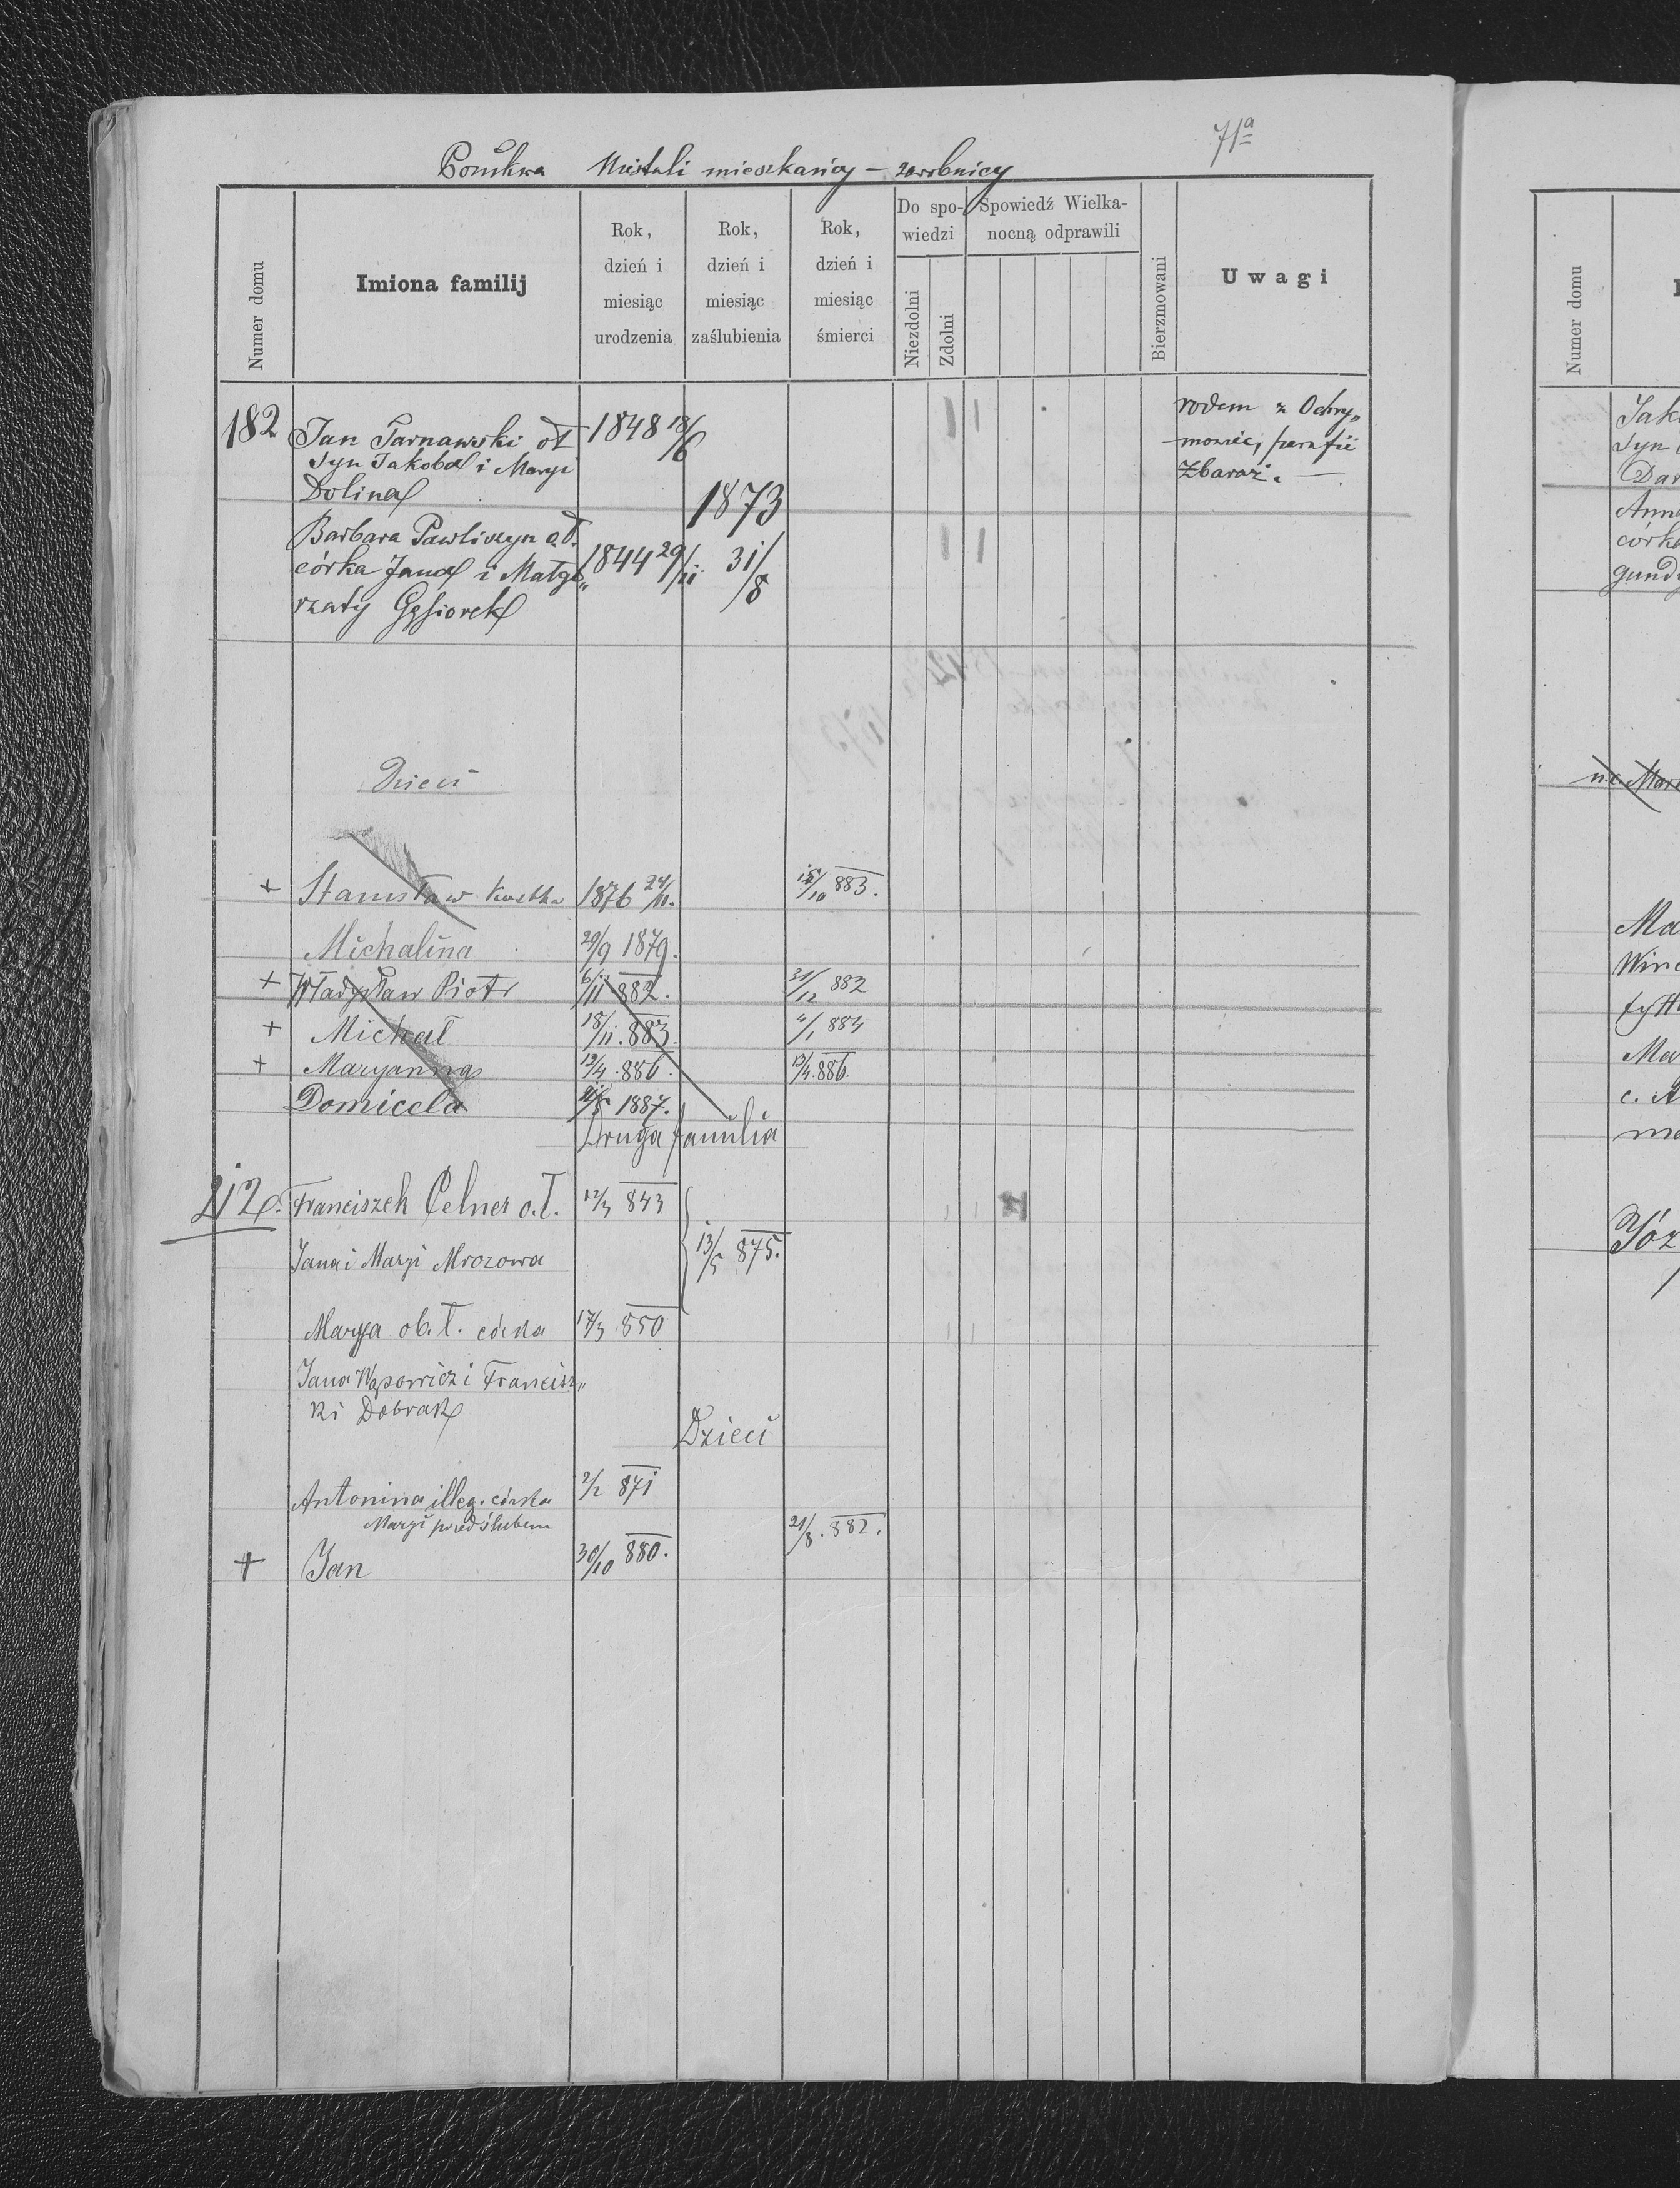 71a
Niestali mieszkańcy – zarobnicy
Numer domu
Imiona familij
Rok, dzień i miesiąc urodzenia
Rok, dzień i miesiąc zaślubienia
Rok, dzień i miesiąc śmierci
Do spo-
wiedzi
Niezdolni
Zdolni
Spowiedź Wielka-
nocną odprawili
Bierzmowani
Uwagi
182 Jan Tarnawski 1848 18/6 rodem z Ochry„
syn Jakoba i Maryi mowiec, parafii
Dolina 1873 Zbaraż. —
Barbara Pawliszyn
córka Jana i Małgo„ 1844 29/11 31/8
rzaty Gąsiorek
Dzieci
+ Stanisław Kostka 1876 24/11. 15/10 883.
Michalina 29/9 1879.
+ Władysław Piotr 6/11 882. 31/12 882
+ Michał 18/11. 883. 4/1 884
+ Maryanna 12/4 . 886. 13/4. 886.
Domicela 1887.
Druga familia
212 Franciszek Celner o. ł. 12/3 843
Jana i Maryi Mrozowa 13/5 875.
Marya ob. ł. córka 17/3 . 850
Jana Wąsowicz i Francisz„
ki Dobrak
Dzieci
Antonina illeg. córka 2/2 871
Maryi przed ślubem
21/8 . 882.
+ Jan 30/10 880.
Numer domu
Jak
syn
Dar
Anna
córk
gund
Ma
Winc
Ma
c. A
Józ